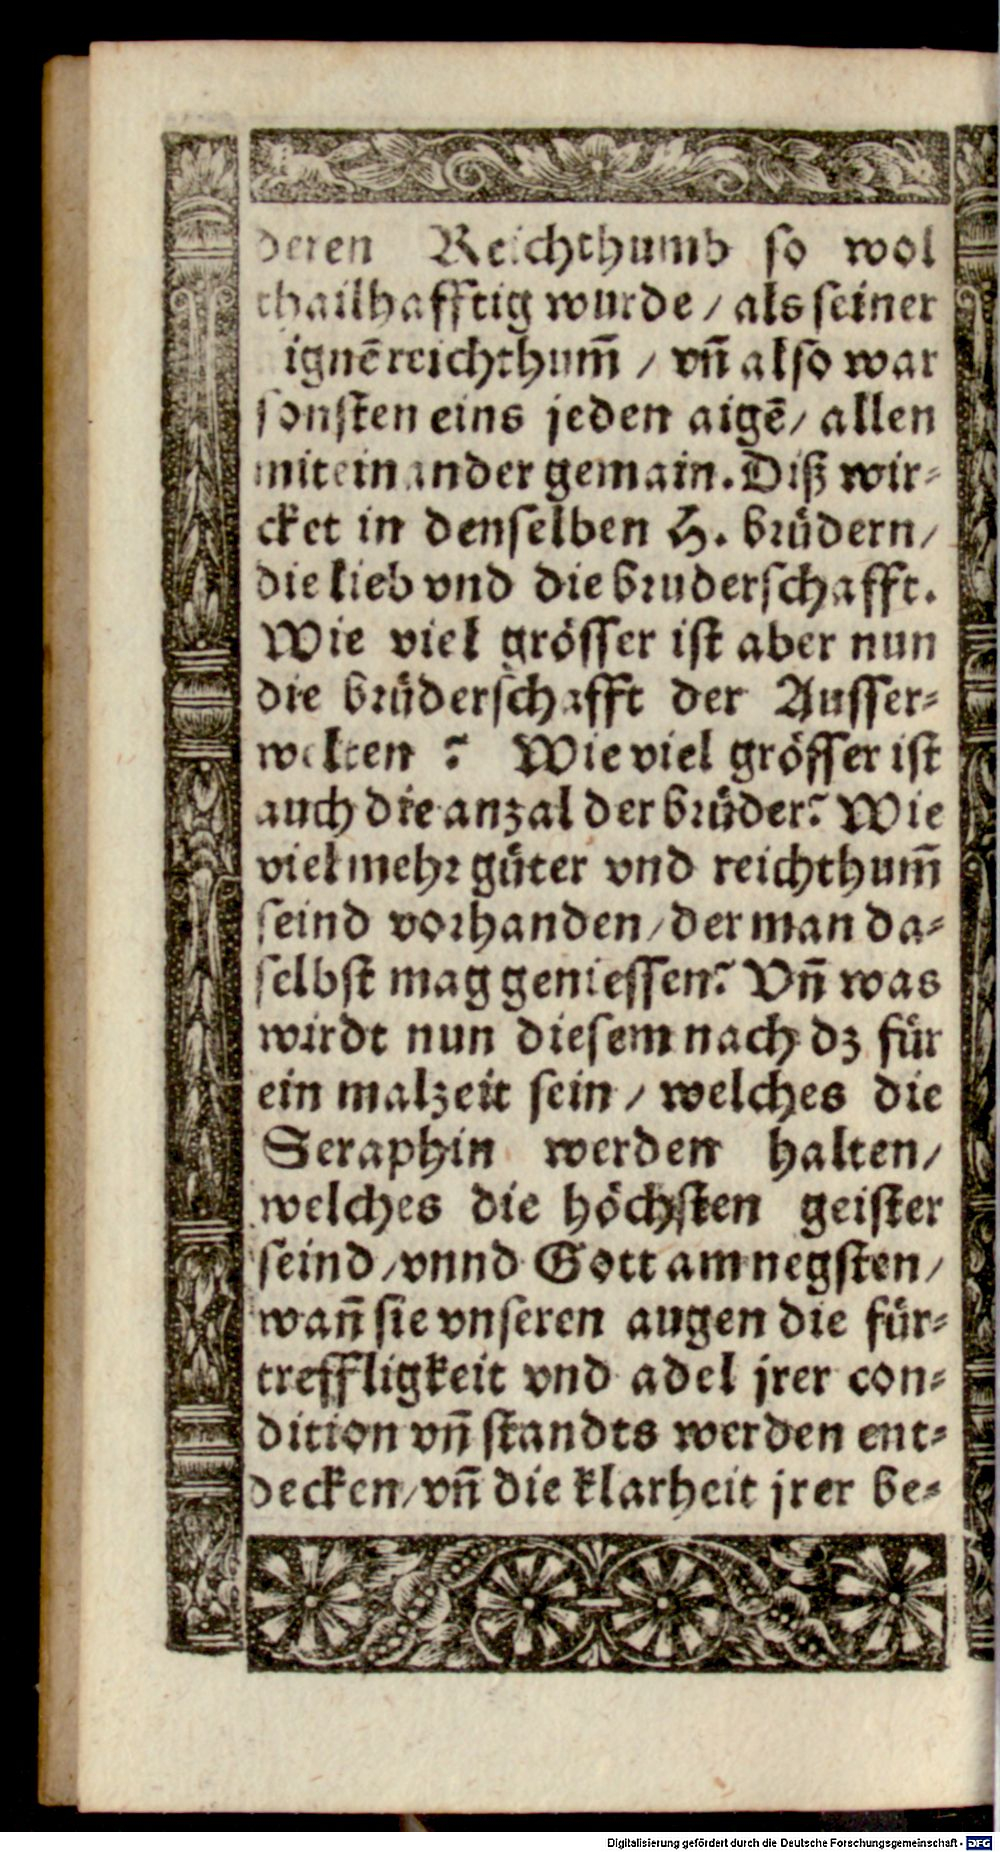 deren Reichthumb so wol
thailhafftig wurde / als seiner
ignē reichthum̄ / vn̄ also war
sonsten eins jeden aigē / allen
miteinander gemain. Diß wir-
cket in denselben H. brüdern /
die lieb vnd die bruderschafft.
Wie viel grösser ist aber nun
die brüderschafft der Ausser-
welten ? Wie viel grösser ist
auch die anzal der brüder? Wie
viel mehr güter vnd reichthum̄
seind vorhanden / der man da-
selbst mag geniessen? Vn̄ was
wirdt nun diesem nach dz für
ein malzeit sein / welches die
Seraphin werden halten /
welches die höchsten geister
seind / vnnd Gott am negsten /
wan̄ sie vnseren augen die für-
treffligkeit vnd adel jrer con-
dition vn̄ standts werden ent-
decken / vn̄ die klarheit jrer be-
Digitalisierung gefördert durch die Deutsche Forschungsgemeinschaft - DFG